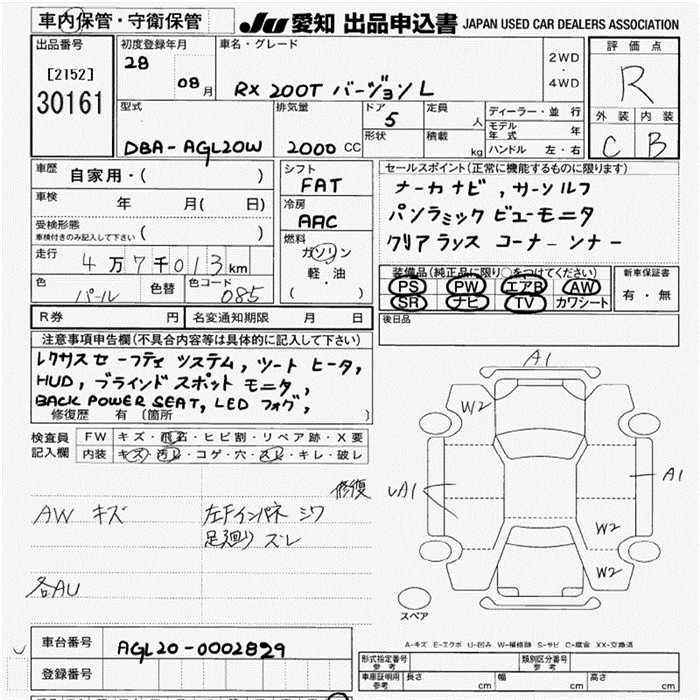 車内保管・守衛保管 JU 愛知 出品申込書 JAPAN USED CAR DEALERS ASSOCIATION
出品番号 初度登録年月 車名・グレード 評価点
[2152] 28 2WD
30161 08月 RX 200T バージョン L ・ R
4WD
型式 排気量 ドア 定員 ディーラー・並行 外装 内装
5 人 モデル年式 年
DBA-AGL20W 2000 CC 形状 積載 kg ハンドル 左・右 C B
車歴 自家用・( ) シフト セールスポイント(正常に機能するものに限ります)
FAT ナーカナビ, サーンルフ
車検 年 月( 日) 冷房 パンラミックビューモニタ
受検形態 AAC クリアランスコーナーンナー
車検付きのみ記入して下さい ( ) 燃料
走行 4万7千013km ガソリン 装備品(純正品に限り○をつけてください) 新車保証書
軽・油 PS PW エアB AW 有・無
色 パール 色替 色コード 085 ( ) SR ナビ TV カワシート
R券 円 名変通知期限 月 日 後日品
注意事項申告欄(不具合内容等は具体的に記入して下さい)
レクサスセーフティシステム, シートヒータ,
HUD, ブラインドスポットモニタ,
BACK POWER SEAT, LED フォグ,
修復歴 有〔箇所 〕
検査員記入欄 FW キズ・飛石・ヒビ割・リペア跡・X要
内装 キズ・汚レ・コゲ・穴・スレ・キレ・破レ
修復
AW キズ 左Fインパネ シワ
足廻り ズレ
各AU
A1
W2
UA1
A1
W2
W2
スペア
A-キズ E-エクボ U-凹み W-補修跡 S-サビ C-腐食 XX-交換済
車台番号 AGL20-0002829 形式指定番号 参考 類別区分番号 参考
登録番号 車庫証明用 参考 長さ cm 幅 cm 高さ cm